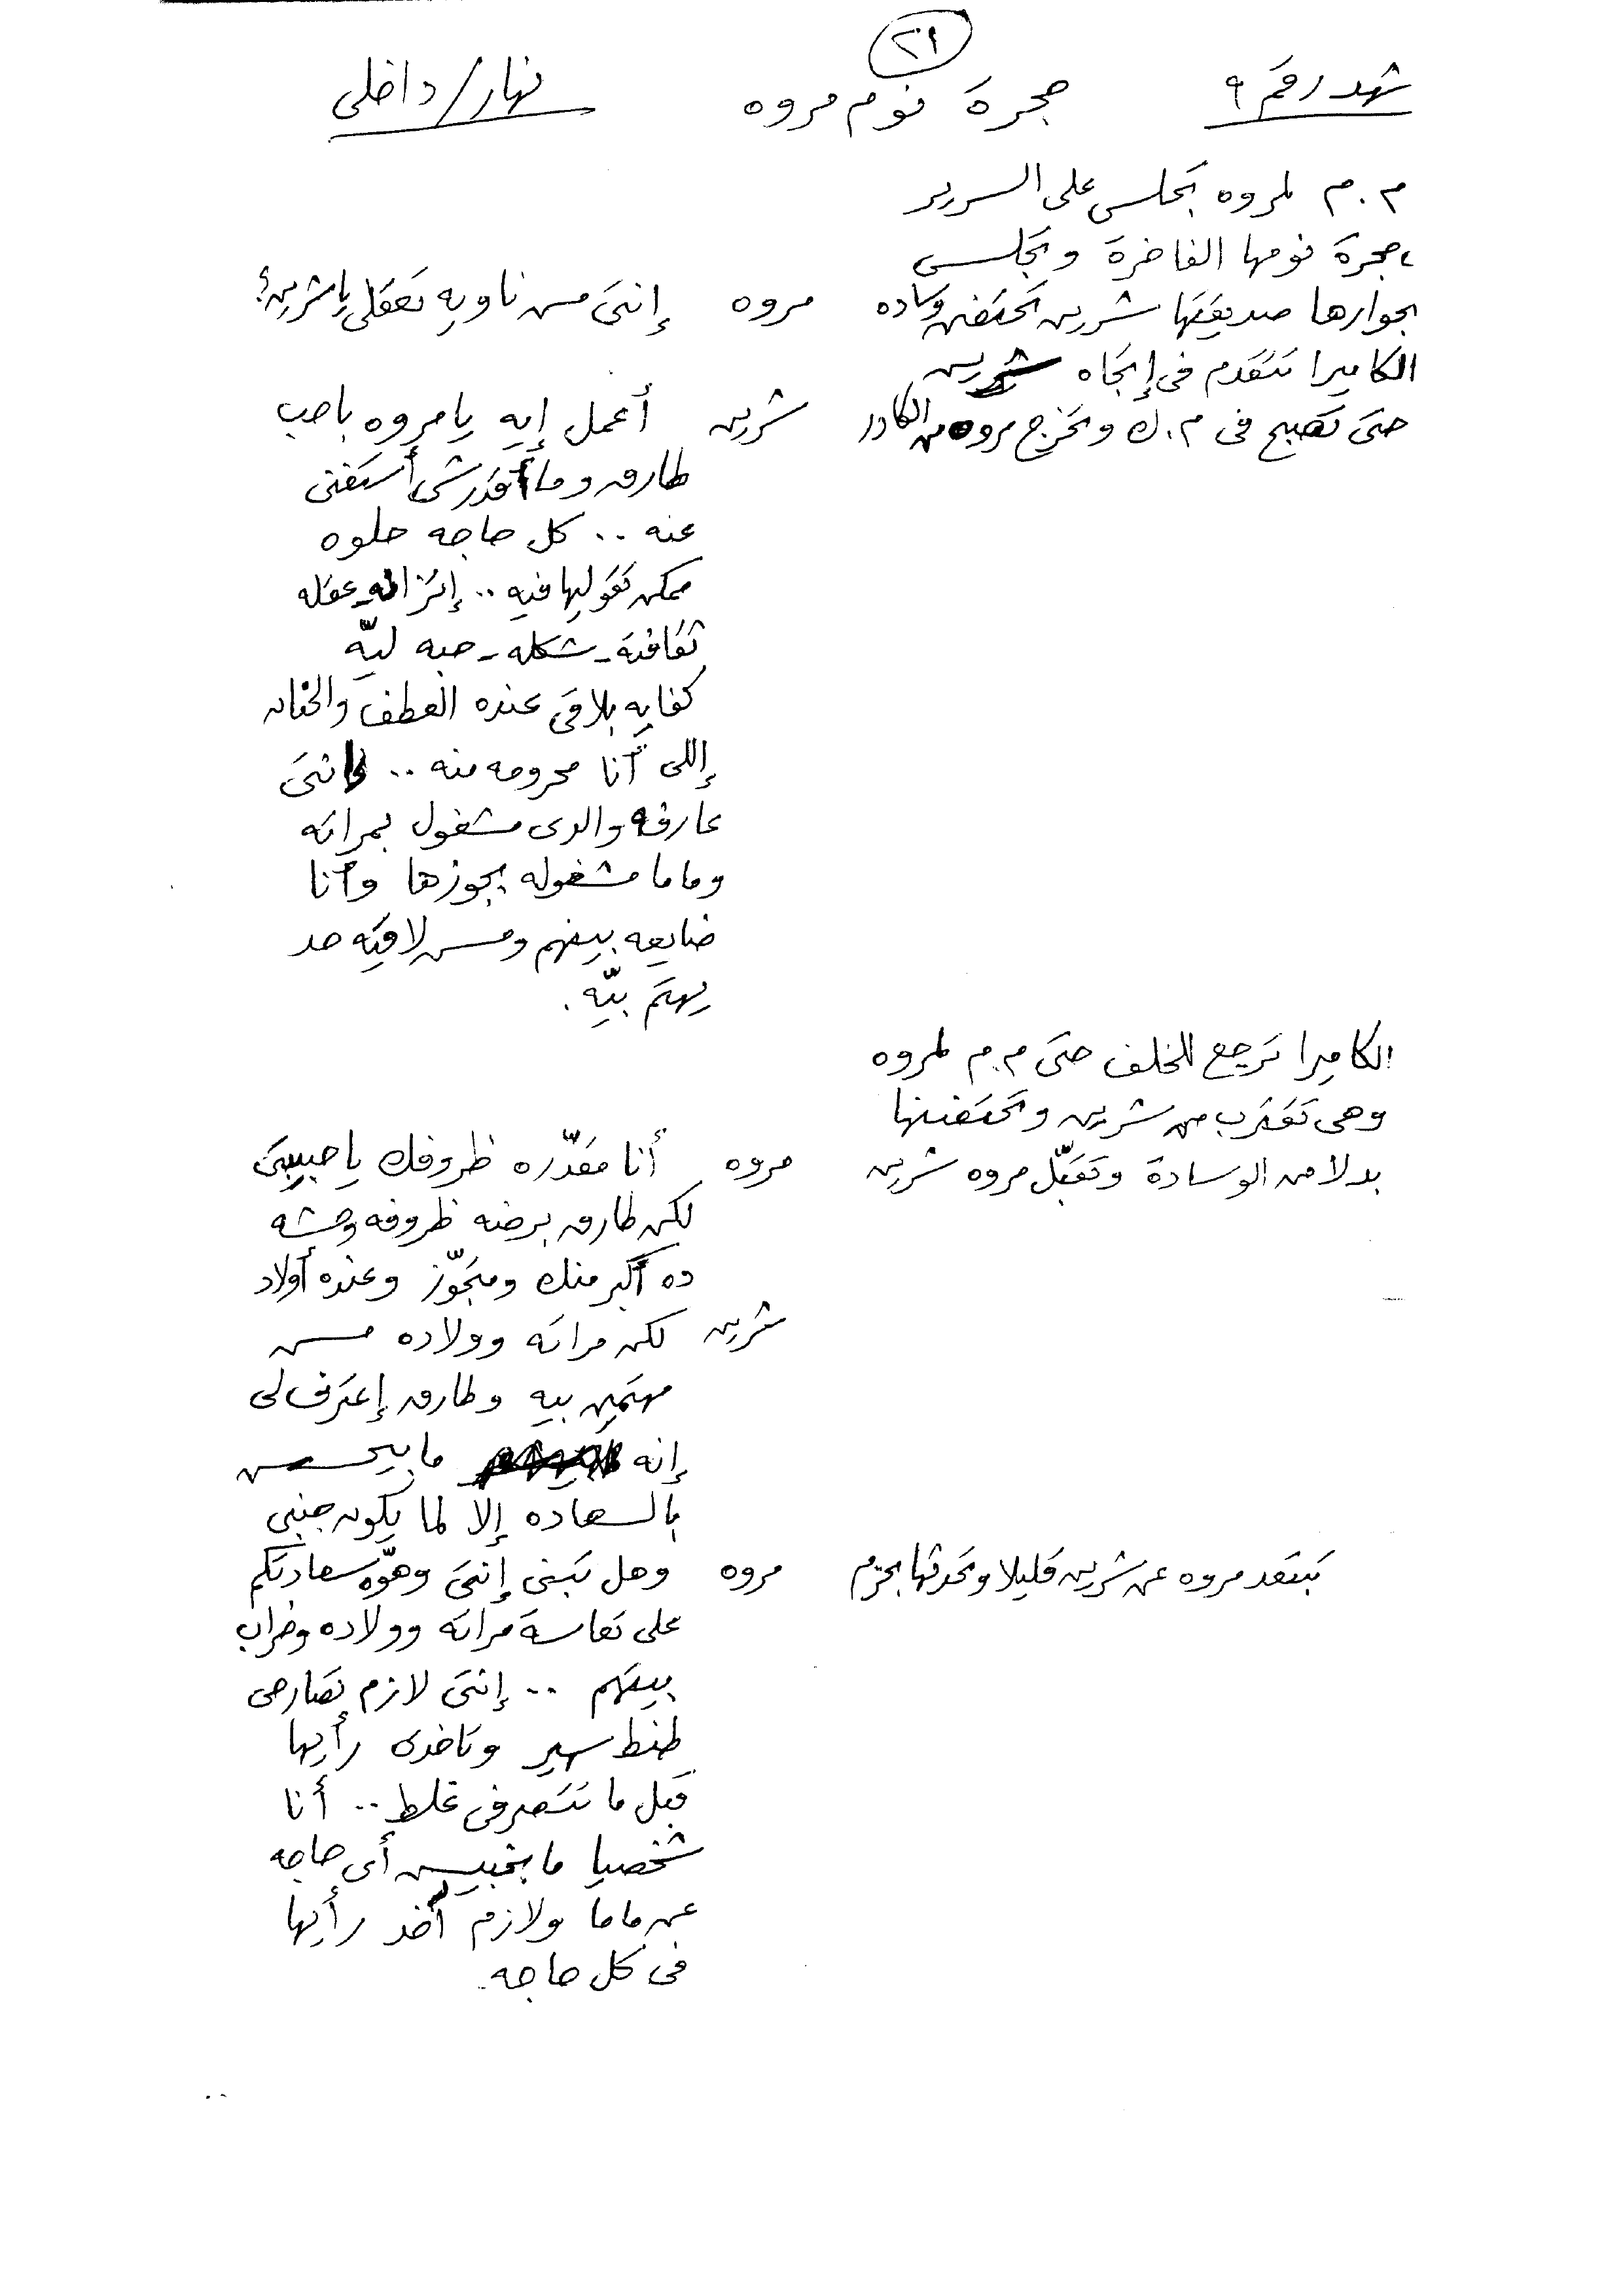 ٢١
مشهد رقم ٩ حجرة نوم مروه نهار/داخلى
م.م لمروه تجلس على السرير
بحجرة نومها الفاخرة وتجلس
بجوارها صديقتها شرين تحتضن وساده مروه إنتى مس ناويه تعقلى يا شرين؟
الكاميرا تتقدم فى إتجاه شرين
حتى تصبح فى م.ك وتخرج مروه من الكادر شرين أعمل إيه يا مروه باحب
طارق وما أقدرش أستغنى
عنه .. كل حاجه حلوه
ممكن تقوليها فيه .. إتزانه - عقله
ثقافته - شكله - حبه ليّه
كفايه بلاقى عنده العطف والحنان
إللى أنا محرومه منه .. وانتى
عارفه والدى مشغول بمراته
وماما مشغوله بجوزها وأنا
ضايعه بينهم ومس لاقيه حد
يهتم بيّه .
الكاميرا ترجع للخلف حتى م.م لمروه
وهى تقترب من شرين وتحتضنها
بدلا من الوسادة وتقبّل مروه شرين مروه أنا مقدّره ظروفك يا حبيبتى
لكن طارق برضه ظروفه وحشه
ده أكبر منك ومتجوّز وعنده أولاد
شرين لكن مراته وولاده مس
مهتمين بيه وطارق إعترف لى
إنه ما بيحس
بالسعاده إلا لما يكون جنبى
تبتعد مروه عن شرين قليلا وتحدثها بحزم مروه وهل تبنى إنتى وهوّه سعادتكم
على تعاسة مراته وولاده وخراب
بيتهم .. إنتى لازم تصارحى
طنط سهير وتاخدى رأيها
قبل ما تتصرفى غلط .. أنا
شخصيا ما بخبيس أى حاجه
عن ماما ولازم آخد رأيها
فى كل حاجه.